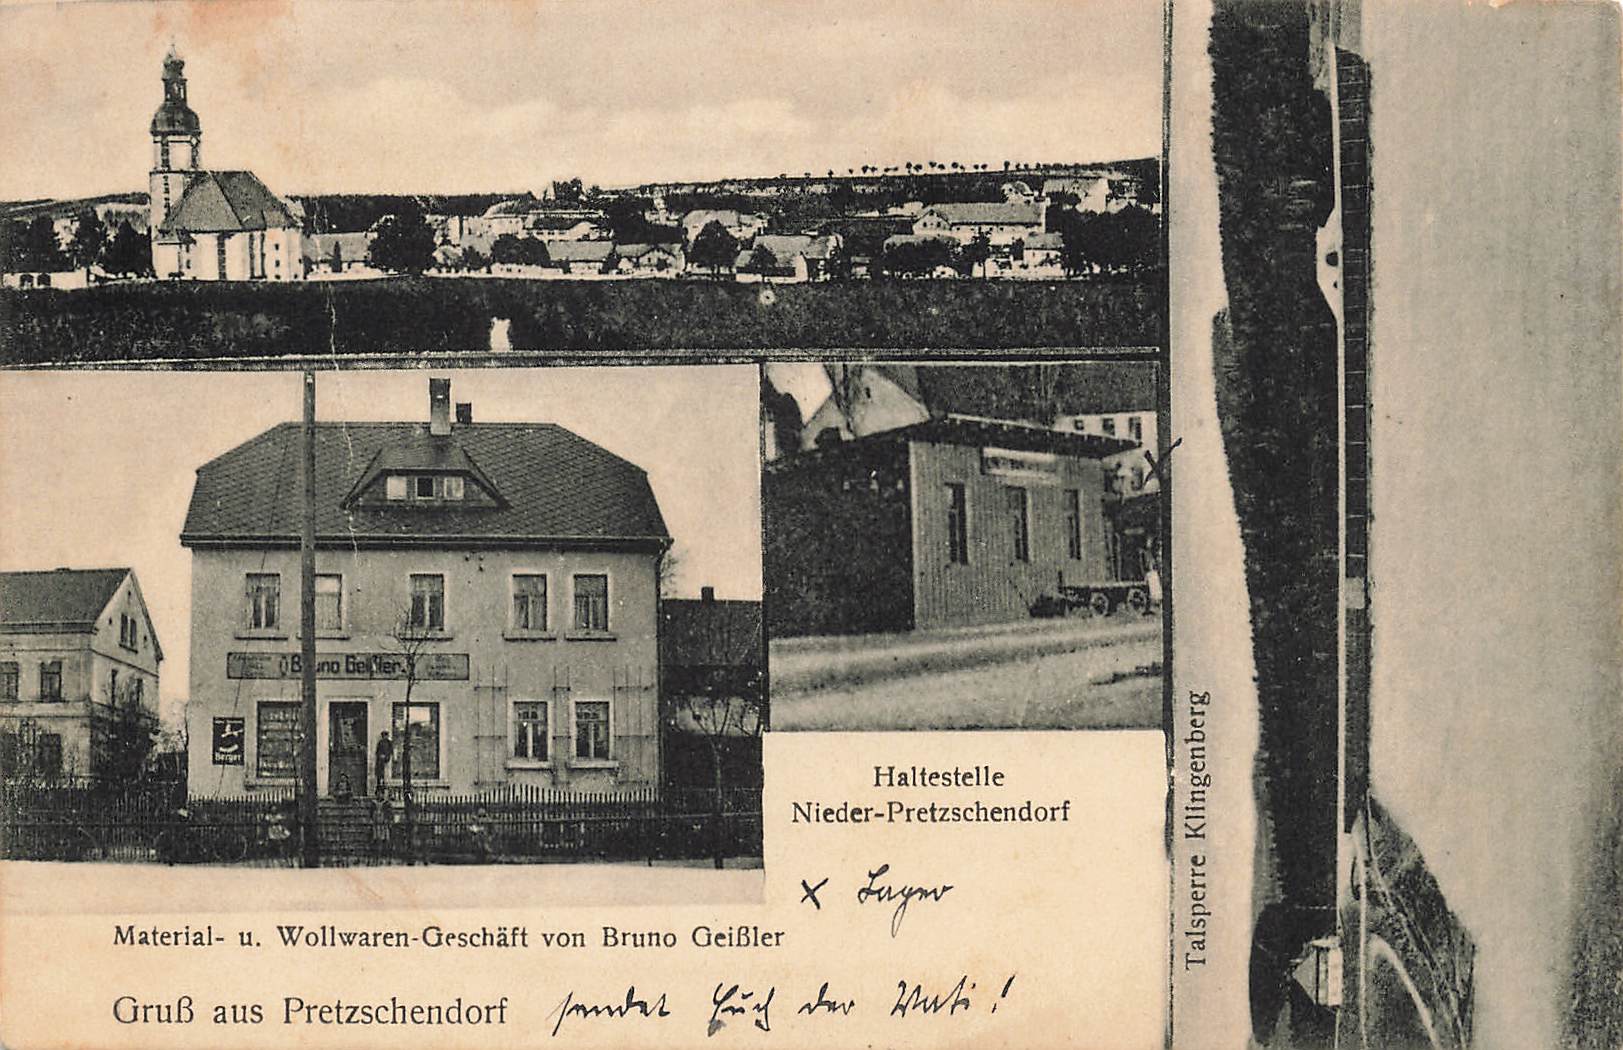 Bruno Geißler
Berger
Haltestelle
Nieder-Pretzschendorf
x Lager
Material- u. Wollwaren-Geschäft von Bruno Geißler
Gruß aus Pretzschendorf sendet Euch der Vati!
Talsperre Klingenberg